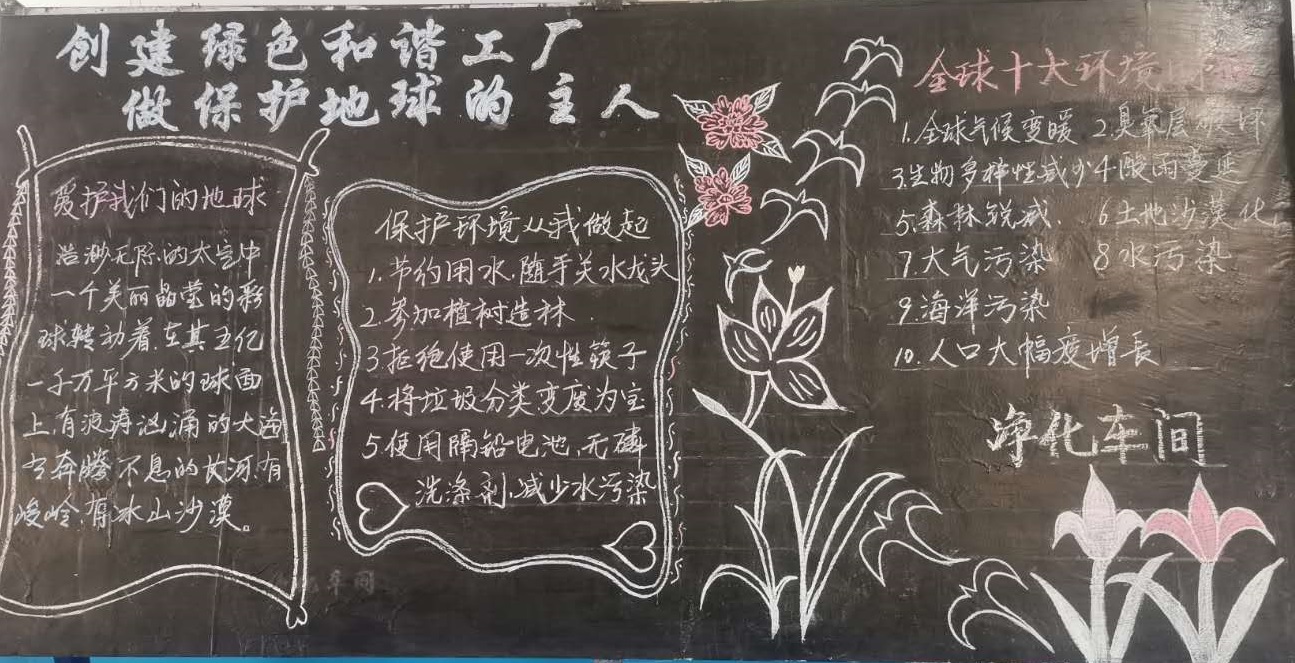 创建绿色和谐工厂
做保护地球的主人
爱护我们的地球
浩渺无际的太空中
一个美丽晶莹的彩
球转动着.在其五亿
一千万平方米的球面
上.有浪涛汹涌的大海
奔腾不息的长河.有
峻岭.有冰山沙漠。
保护环境从我做起
1.节约用水.随手关水龙头
2.参加植树造林.
3.拒绝使用一次性筷子
4.将垃圾分类变废为宝
5.使用隔铅电池.无磷
洗涤剂.减少水污染
全球十大环境
1.全球气候变暖 2.臭氧层破坏
3.生物多样性减少4酸雨蔓延
5.森林锐减. 6土地沙漠化
7.大气污染 8水污染
9.海洋污染
10.人口大幅度增长
净化车间
车间